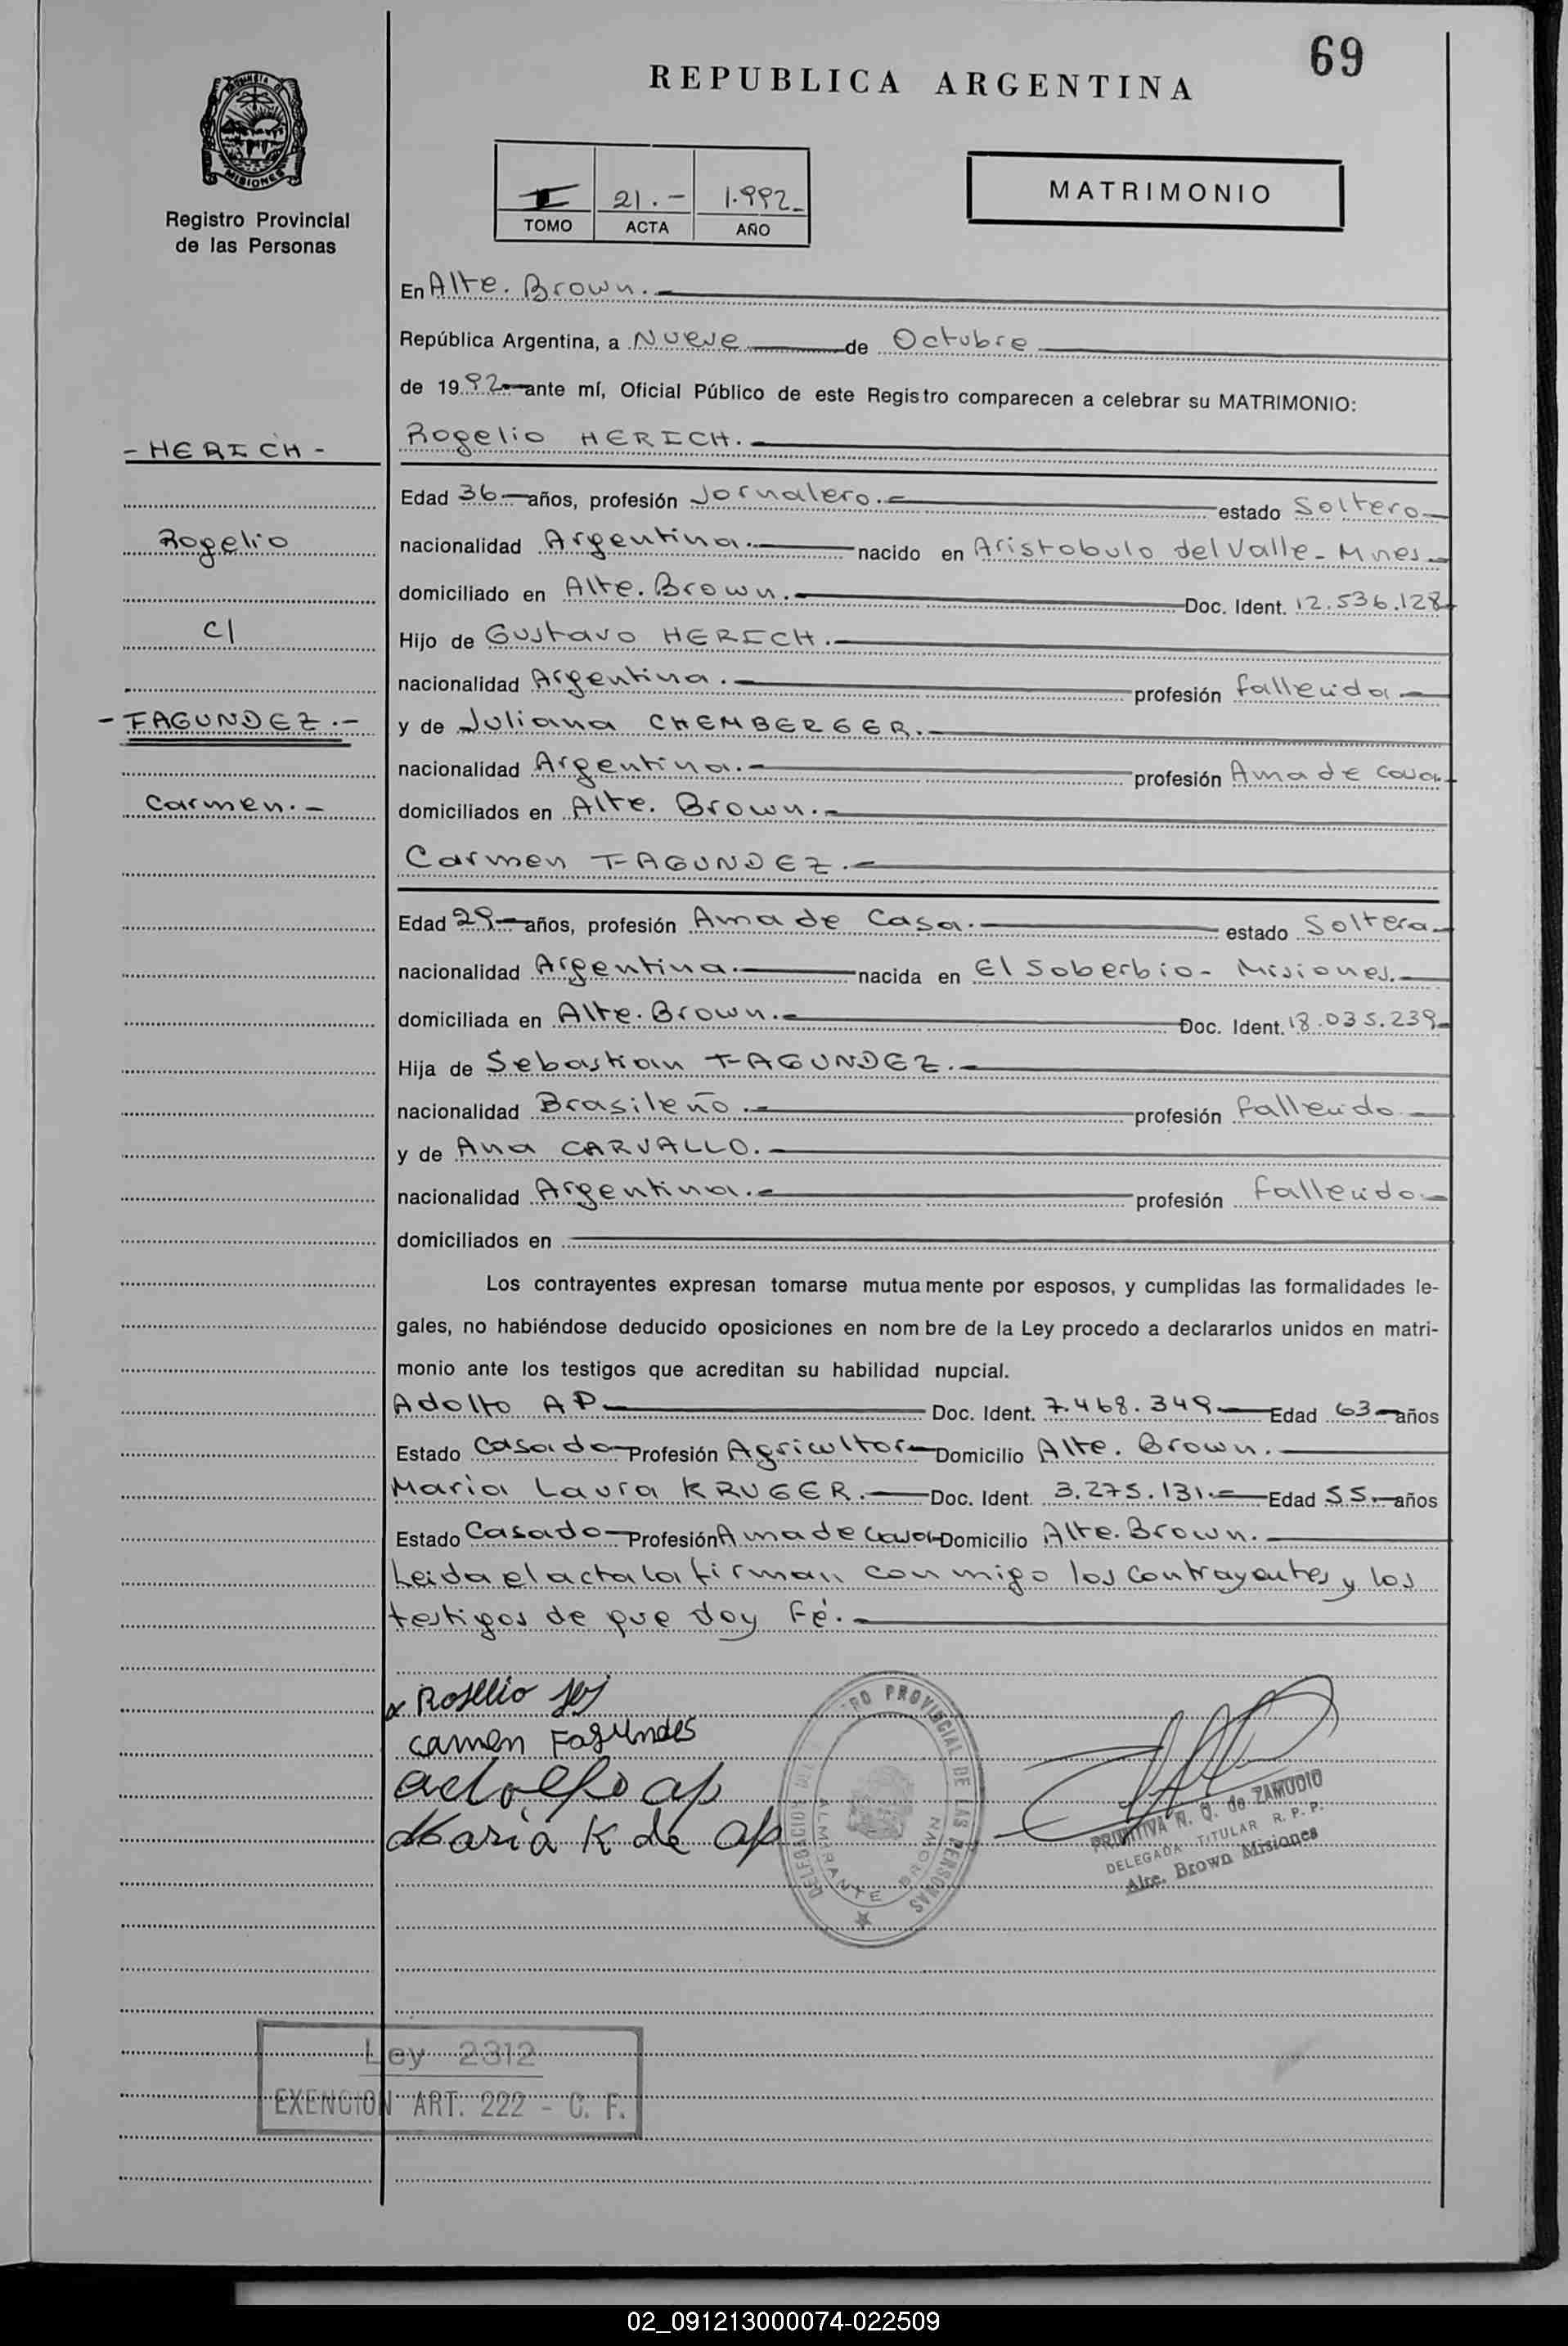 69
REPUBLICA ARGENTINA
MISIONES
Registro Provincial
de las Personas
I 21.- 1.992-
TOMO ACTA AÑO
MATRIMONIO
En Alte. Brown.-
República Argentina, a Nueve de Octubre
de 1992 ante mí, Oficial Público de este Registro comparecen a celebrar su MATRIMONIO:
- HERICH -
Rogelio HERICH.-
Edad 36 años, profesión Jornalero.- estado Soltero
Rogelio
nacionalidad Argentina.- nacido en Aristobulo del Valle - Mnes
domiciliado en Alte. Brown.- Doc. Ident. 12.536.128
C/
Hijo de Gustavo HERICH.-
nacionalidad Argentina.- profesión fallecida
- FAGUNDEZ.-
y de Juliana CHEMBERGER.-
nacionalidad Argentina.- profesión Ama de casa
Carmen.-
domiciliados en Alte. Brown.-
Carmen FAGUNDEZ.-
Edad 29 años, profesión Ama de Casa.- estado Soltera
nacionalidad Argentina.- nacida en El Soberbio - Misiones.
domiciliada en Alte. Brown.- Doc. Ident. 18.035.239
Hija de Sebastian FAGUNDEZ.-
nacionalidad Brasileño.- profesión fallecido
y de Ana CARVALLO.-
nacionalidad Argentina.- profesión fallecido
domiciliados en
Los contrayentes expresan tomarse mutuamente por esposos, y cumplidas las formalidades le-
gales, no habiéndose deducido oposiciones en nombre de la Ley procedo a declararlos unidos en matri-
monio ante los testigos que acreditan su habilidad nupcial.
Adolfo AP Doc. Ident. 7.468.349 Edad 63 años
Estado Casado Profesión Agricultor Domicilio Alte. Brown.
Maria Laura KRUGER.- Doc. Ident. 3.275.131.- Edad 55.- años
Estado Casado Profesión Ama de casa Domicilio Alte. Brown.
Leida el acta la firman conmigo los contrayentes y los
testigos de que doy Fé.-
x Rosellio
carmen Fagundes
adolfo ap
Maria K de ap
DELEGACION DEL REGISTRO PROVINCIAL DE LAS PERSONAS
ALMIRANTE BROWN
PRIMITIVA N. Q. de ZAMUDIO
DELEGADA TITULAR R. P. P.
Alte. Brown Misiones
Ley 2312
EXENCION ART. 222 - C. F.
02_091213000074-022509